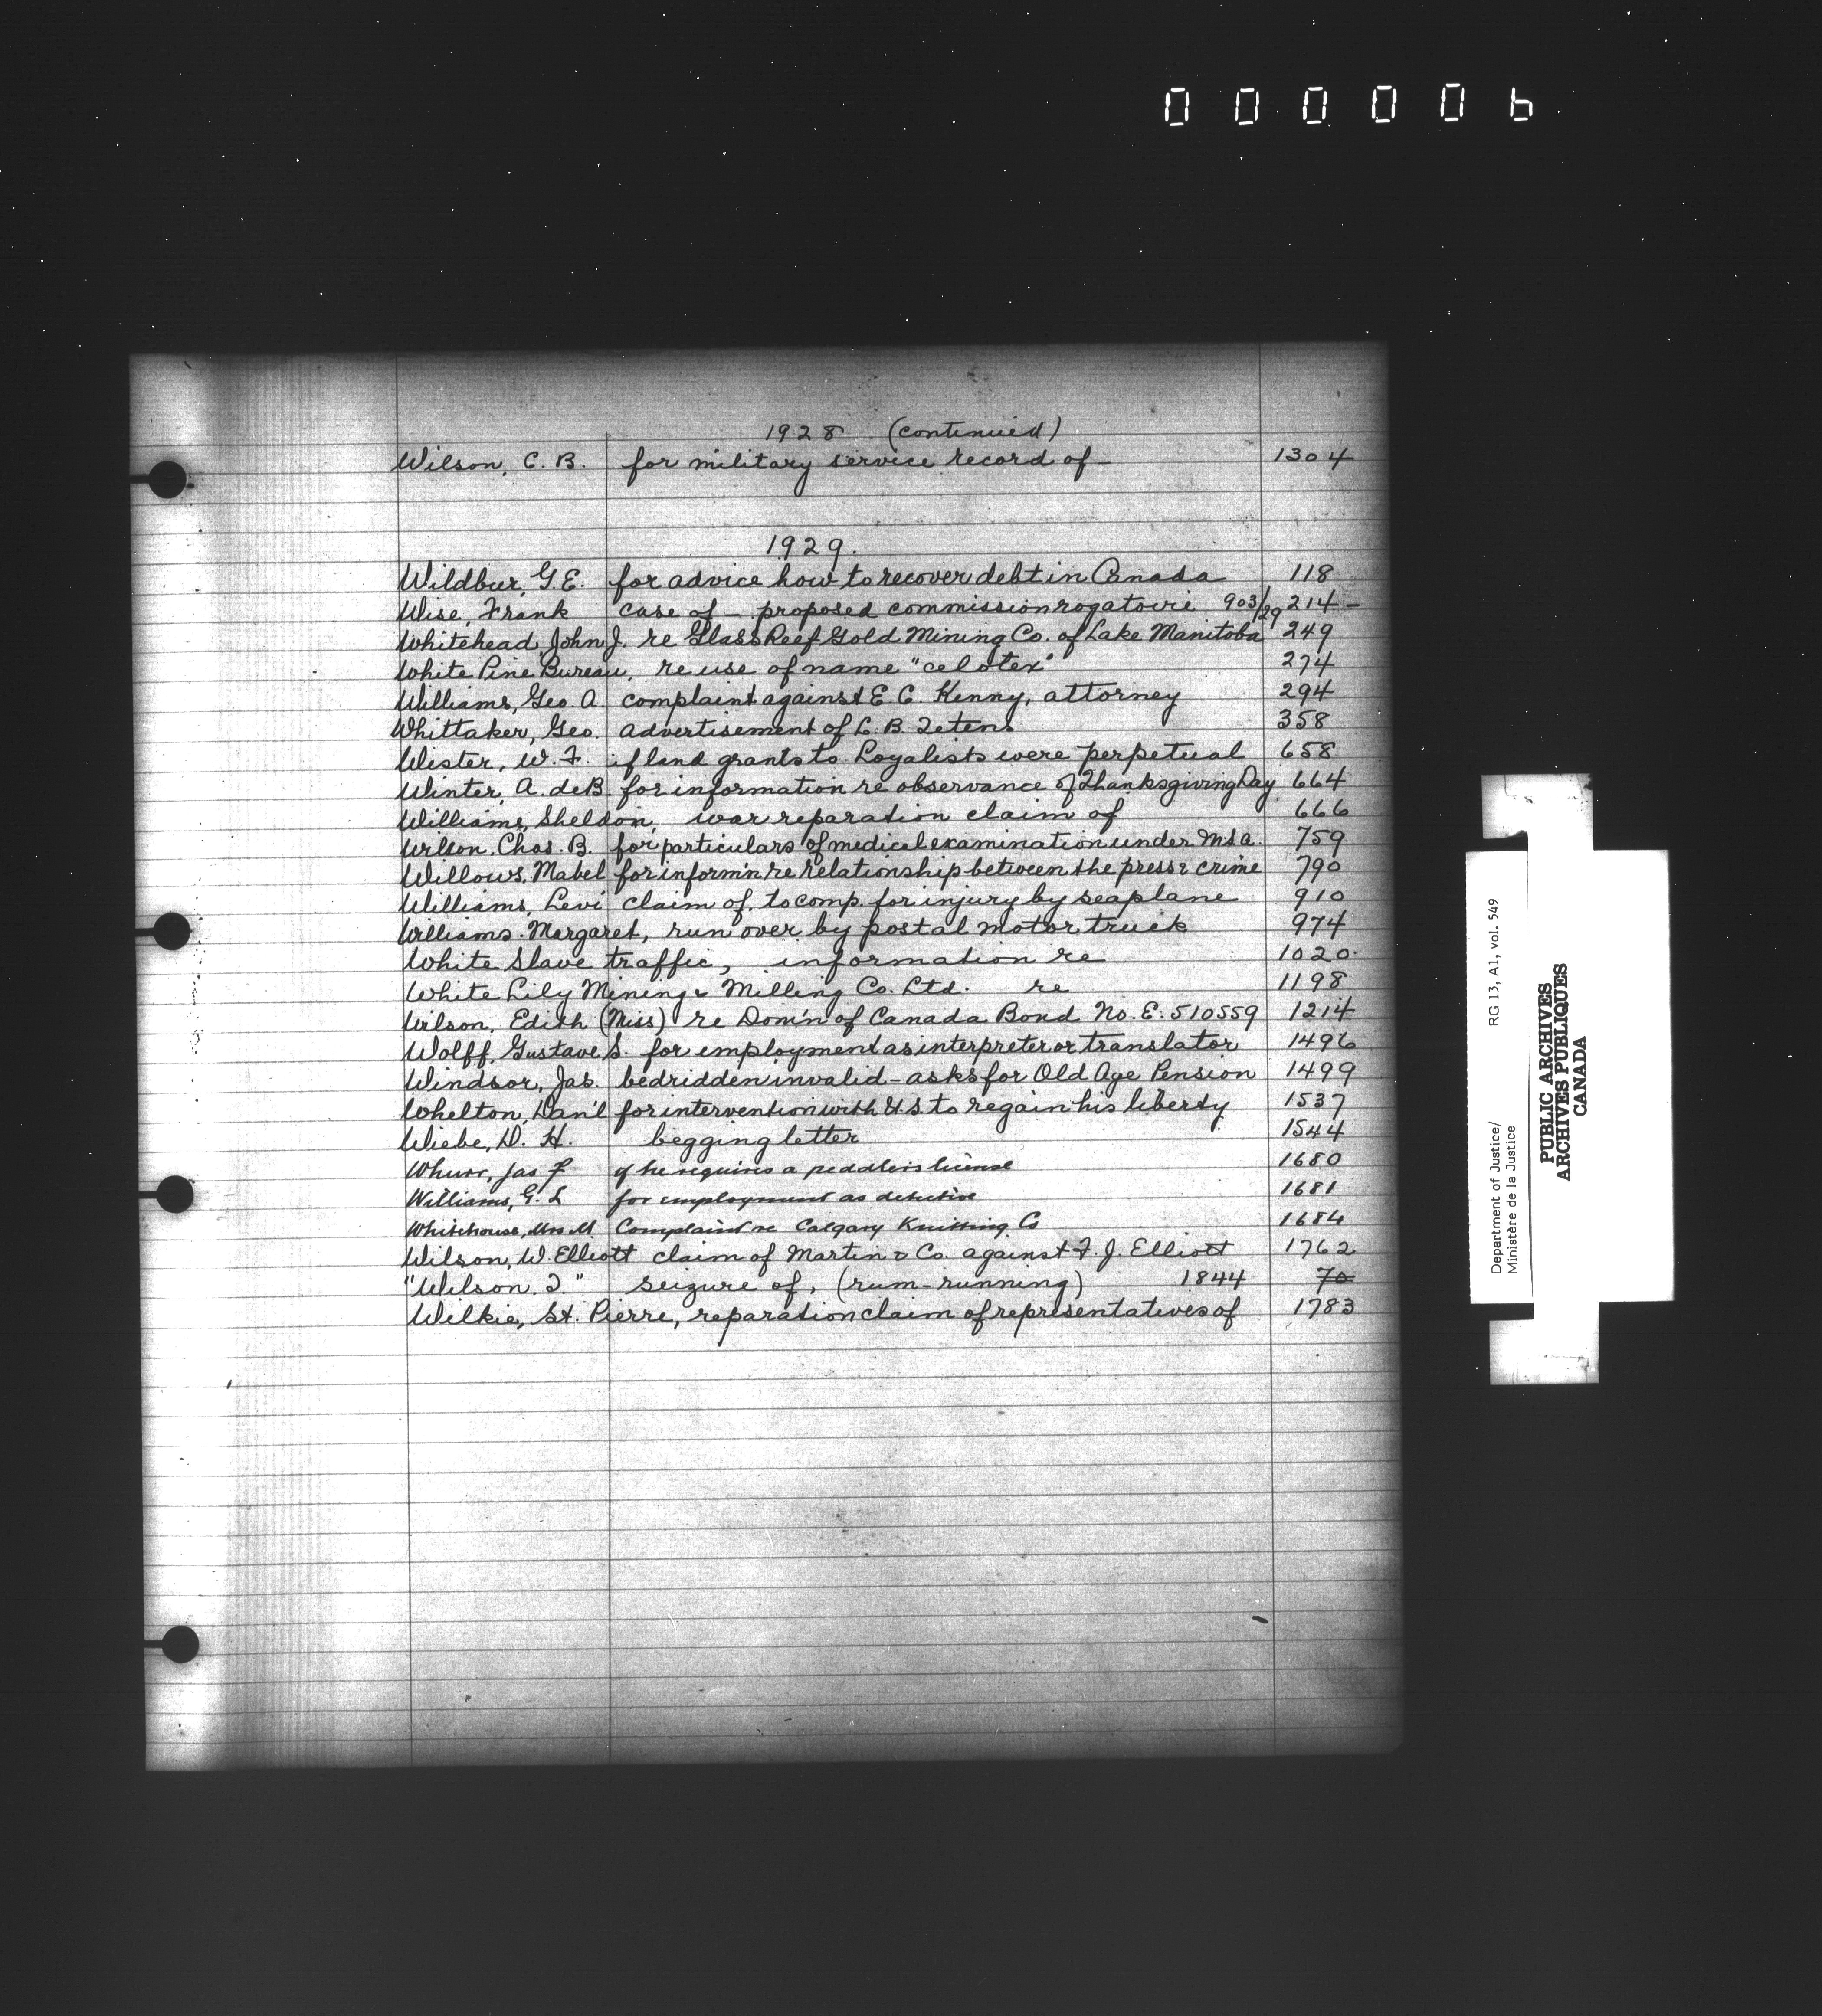 000006
1928 (continued)
Wilson, C. B. for military service record of — 1304
1929.
Wildbur, G.E. for advice how to recover debt in Canada 118
Wise, Frank case of — proposed commission rogatoire 903/29 214 —
Whitehead, John J. re Glass Reef Gold Mining Co. of Lake Manitoba 249
White Pine Bureau, re use of name "celotex" 274
Williams, Geo A. complaint against E C. Kenny, attorney 294
Whittaker, Geo. advertisement of L. B. Tetens 358
Wister, W. F. if land grants to Loyalists were perpetual 658
Winter, A. deB. for information re observance of Thanksgiving Day 664
Williams, Sheldon, war reparation claim of 666
Wilson, Chas. B. for particulars of medical examination under M.S.A. 759
Willows, Mabel for inform'n re relationship between the press & crime 790
Williams, Levi claim of, to comp. for injury by seaplane 910
Williams. Margaret, run over by postal motor truck 974
White Slave traffic, information re 1020.
White Lily Mining & Milling Co. Ltd. re 1198
Wilson, Edith (Miss) re Dom'n of Canada Bond No. E. 510559 1214
Wolff, Gustave S. for employment as interpreter or translator 1496
Windsor, Jas. bedridden invalid - asks for Old Age Pension 1499
Whelton, Dan'l for intervention with U.S. to regain his liberty 1537
Wiebe, D. H. begging letter 1544
Whurr, Jas F if he requires a peddlers license 1680
Williams, G. L for employment as detective 1681
Whitehouse, Mrs M. Complaint re Calgary Knitting Co 1684
Wilson, W. Elliott claim of Martin & Co. against F. J. Elliott 1762
"Wilson. T." seizure of, (rum-running) 1844 70
Wilkie, St. Pierre, reparation claim of representatives of 1783
Department of Justice/ RG 13, A1, vol. 549
Ministère de la Justice
PUBLIC ARCHIVES
ARCHIVES PUBLIQUES
CANADA